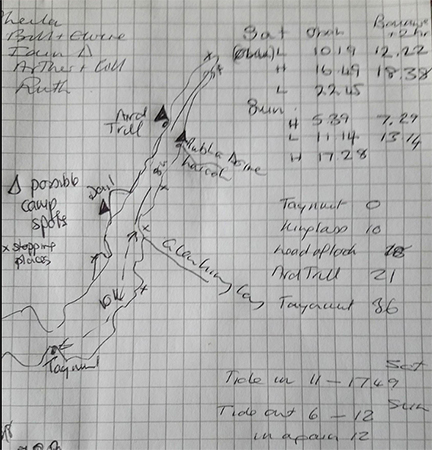 Sheila
Bill + Ewine
Iain Δ
Arther + Coll
Ruth
Sat Oban Bonawe +2hr
L 10.19 12.22
H 16.49 18.38
L 22.45
Sun
H 5.39 7.29
L 11.14 13.14
H 17.28
Ard Trill
Rubha
Dail
possible camp spots
x stopping places
Taynuilt
Taynuilt 0
Kinglass 10
head of loch 18
Ard Trill 21
Taynuilt 36
Sat
Tide in 11 - 1749
Tide out 6 - 12 Sun
in again 12